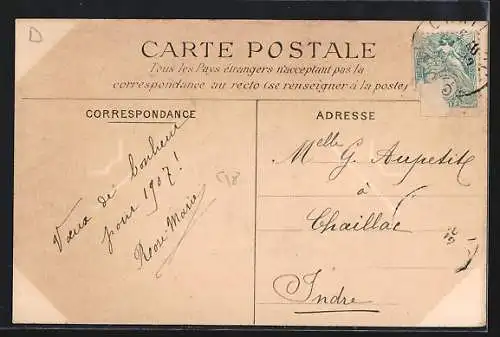 D
CARTE POSTALE
Tous les Pays étrangers n'acceptant pas la
correspondance au recto (se renseigner à la poste)
CORRESPONDANCE
Vœux de bonheur
pour 1907!
Marie
ADRESSE
Melle G. Aupetit
à
Chaillac
Indre